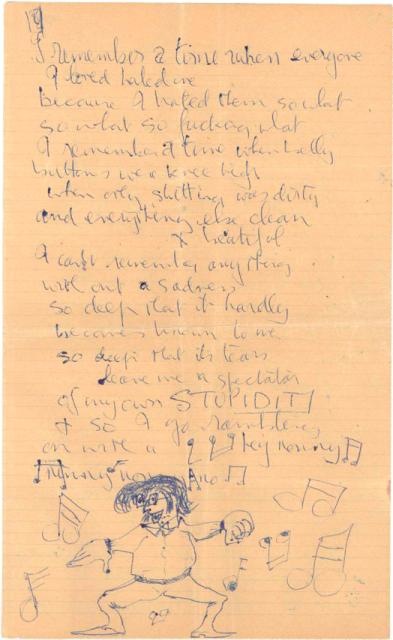 I remember a time when everyone
I loved hated me
because I hated them so what
so what so fucking what
I remember a time when belly
buttons were knee high
when only shitting was dirty
and everything else clean
& beatiful
I can't remember anything
without a sadness
so deep that it hardly
becomes known to me
so deep that its tears
leave me a spectator
of my own STUPIDITY
& so I go rambling
on with a hey nonny
nonny no